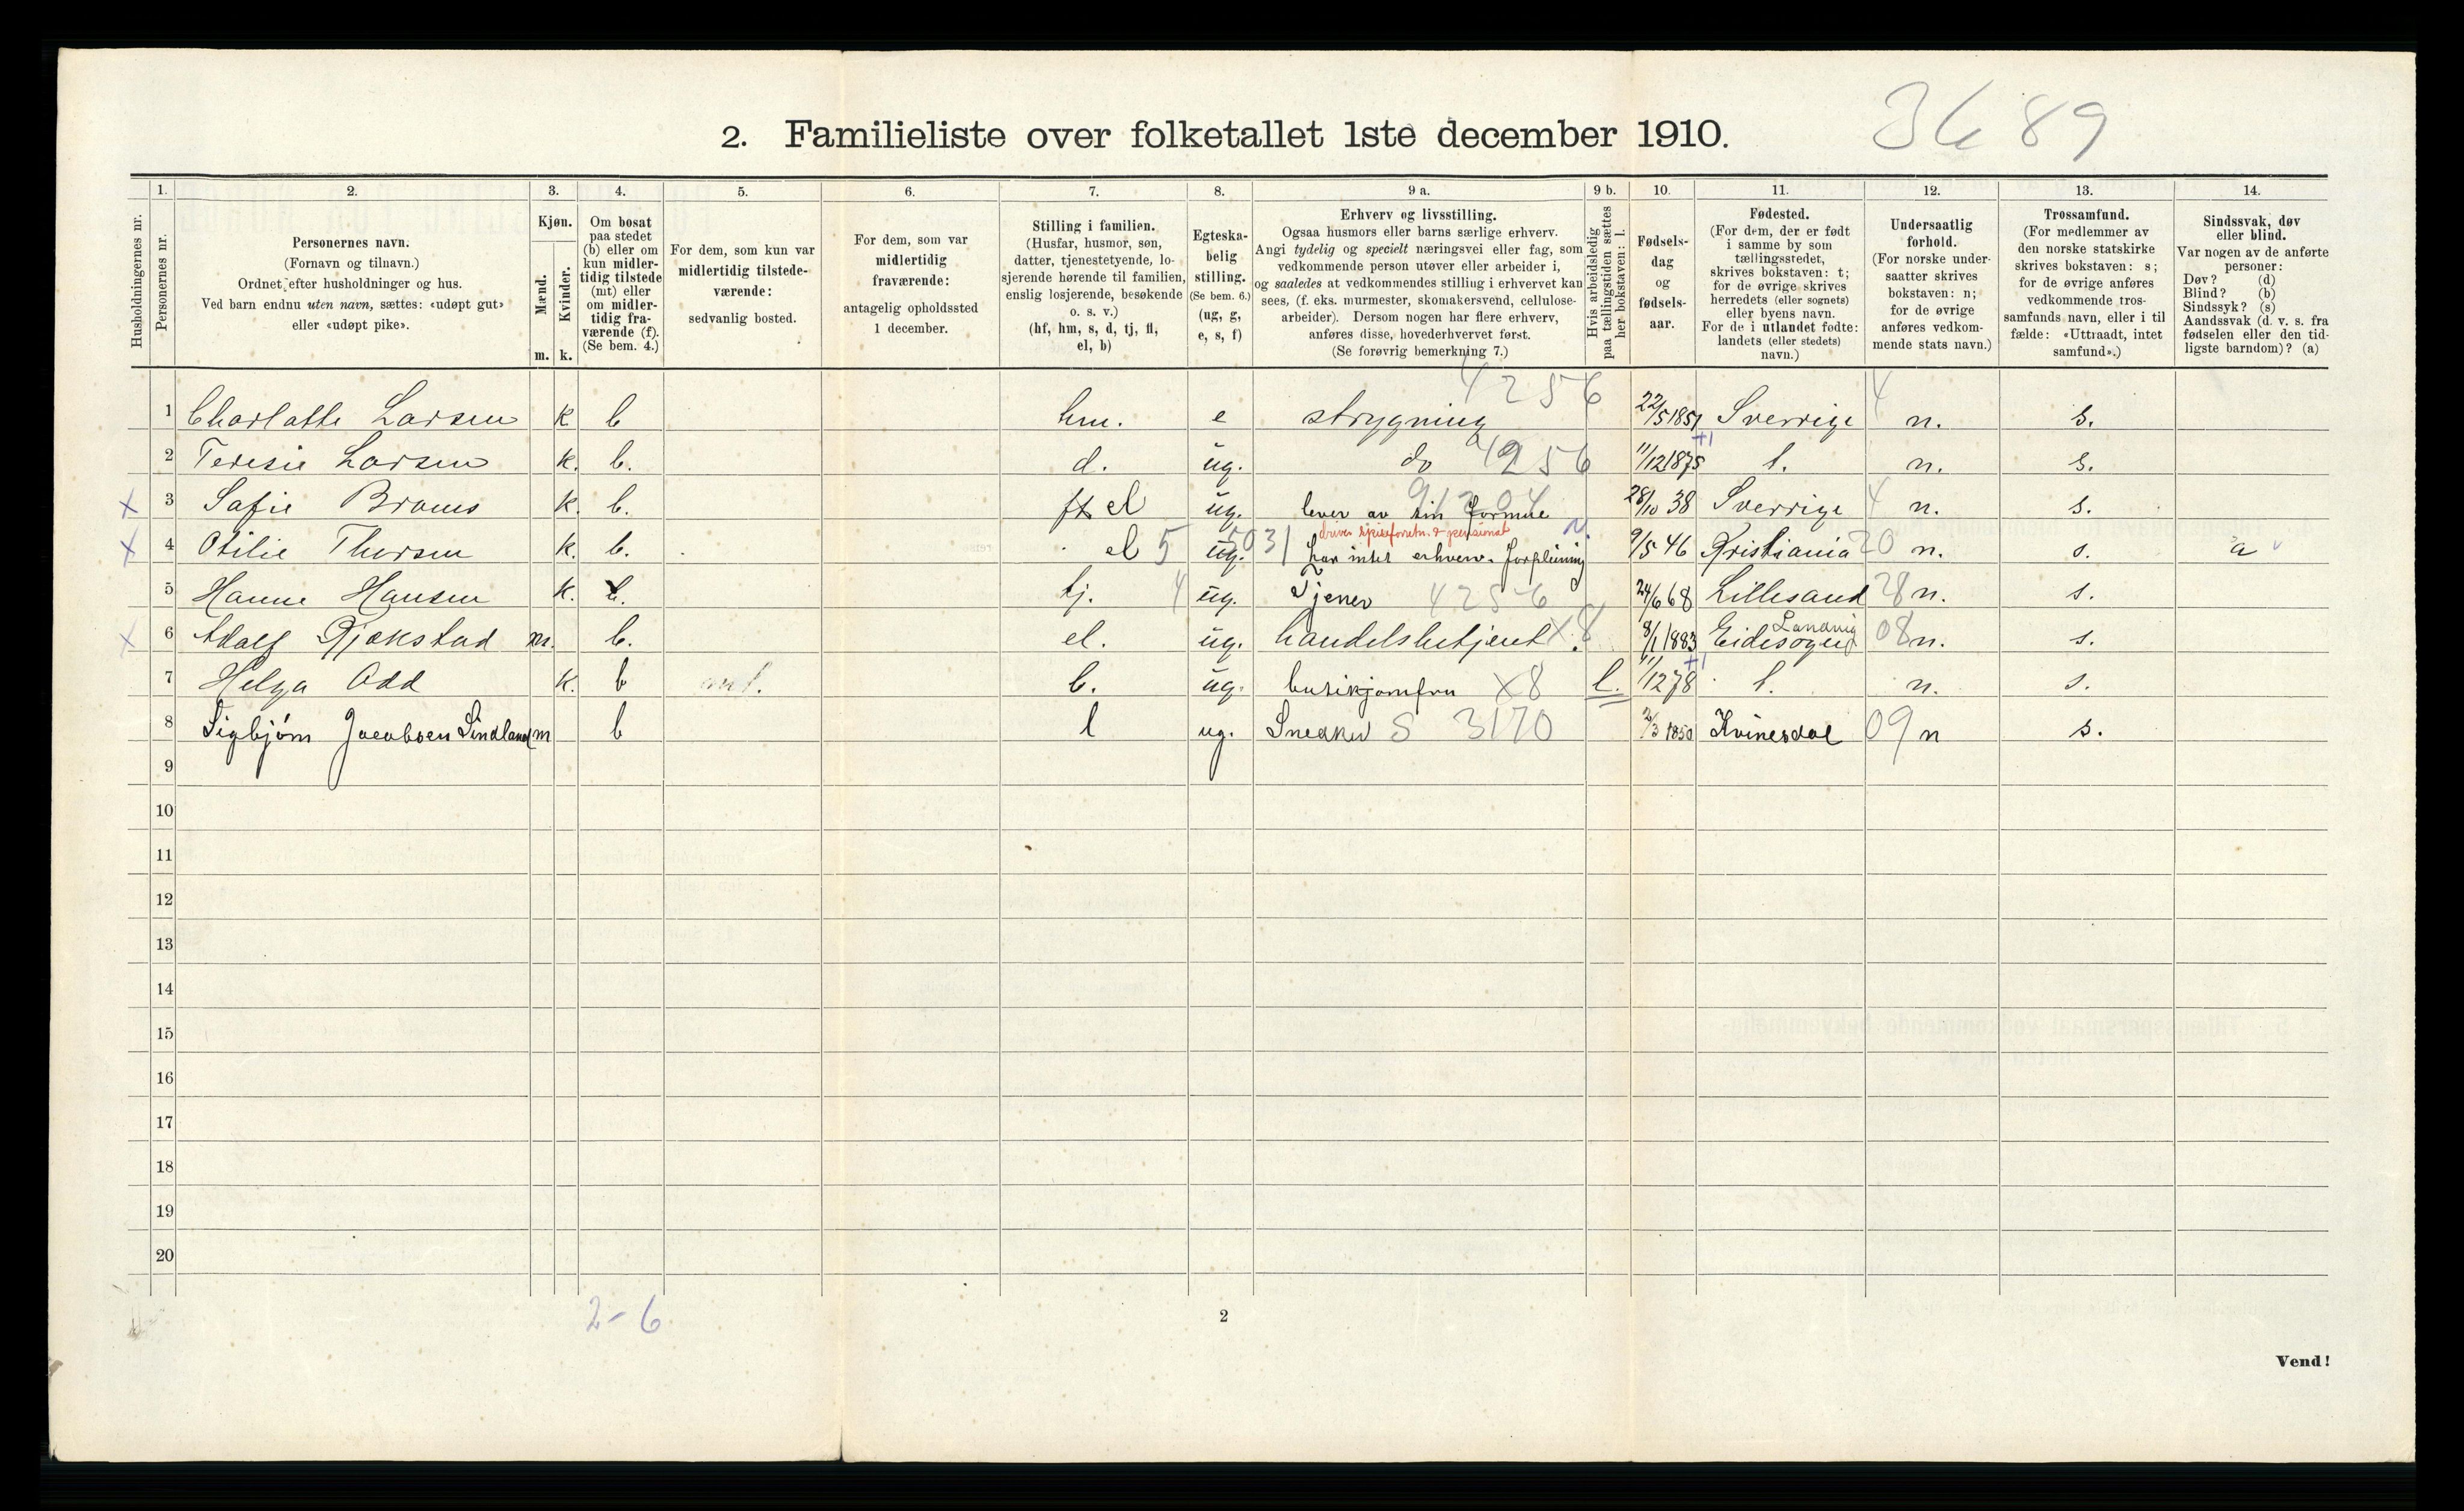 2. Familieliste over folketallet 1ste december 1910.
3689
1. 2. 3. 4. 5. 6. 7. 8. 9 a. 9 b. 10. 11. 12. 13. 14.
Husholdningernes nr.
Personernes nr.
Personernes navn.
(Fornavn og tilnavn.)
Ordnet efter husholdninger og hus.
Ved barn endnu uten navn, sættes: «udøpt gut»
eller «udøpt pike».
Kjøn.
Mænd.
Kvinder.
m. k.
Om bosat
paa stedet
(b) eller om
kun midler-
tidig tilstede
(mt) eller
om midler-
tidig fra-
værende (f).
(Se bem. 4.)
For dem, som kun var
midlertidig tilstede-
værende:
sedvanlig bosted.
For dem, som var
midlertidig
fraværende:
antagelig opholdssted
1 december.
Stilling i familien.
(Husfar, husmor, søn,
datter, tjenestetyende, lo-
sjerende hørende til familien,
enslig losjerende, besøkende
o. s. v.)
(hf, hm, s, d, tj, fl,
el, b)
Egteska-
belig
stilling.
(Se bem. 6.)
(ug, g,
e, s, f)
Erhverv og livsstilling.
Ogsaa husmors eller barns særlige erhverv.
Angi tydelig og specielt næringsvei eller fag, som
vedkommende person utøver eller arbeider i,
og saaledes at vedkommendes stilling i erhvervet kan
sees, (f. eks. murmester, skomakersvend, cellulose-
arbeider). Dersom nogen har flere erhverv,
anføres disse, hovederhvervet først.
(Se forøvrig bemerkning 7.)
Hvis arbeidsledig
paa tællingstiden sættes
her bokstaven: l.
Fødsels-
dag
og
fødsels-
aar.
Fødested.
(For dem, der er født
i samme by som
tællingsstedet,
skrives bokstaven: t;
for de øvrige skrives
herredets (eller sognets)
eller byens navn.
For de i utlandet fødte:
landets (eller stedets)
navn.)
Undersaatlig
forhold.
(For norske under-
saatter skrives
bokstaven: n;
for de øvrige
anføres vedkom-
mende stats navn.)
Trossamfund.
(For medlemmer av
den norske statskirke
skrives bokstaven: s;
for de øvrige anføres
vedkommende tros-
samfunds navn, eller i til
fælde: «Uttraadt, intet
samfund».)
Sindssvak, døv
eller blind.
Var nogen av de anførte
personer:
Døv? (d)
Blind? (b)
Sindssyk? (s)
Aandssvak (d. v. s. fra
fødselen eller den tid-
ligste barndom)? (a)
4256
1 Charlatte Larsen k b hm. e strygning 22/5 1851 Sverrige 4 n. s.
2 Teresie Larsen k. b. d. ug. do 4256 11/12 1875 +1 t. n. s.
x 3 Safie Broms k. b. el ug. 91204 lever av sin formue 28/10 38 Sverrige 4 n. s.
driver spiseforretn. & pensionat
x 4 Otilie Thorsen k. b. el 5 ug. 5031 har intet erhverv. forpleining 9/5 46 Kristiania 20 n. s. a
5 Hanne Hansen k. b. tj. 4 ug. Tjener 4256 24/6 68 Lillesand 28 n. s.
Landvig
x 6 Adalf Gjækstad m. b. el. ug. handelsbetjent x8 8/1 1883 Eidesogn 08 n. s.
7 Helga Odd k. b b. ug. butikjomfru x8 l. 11/12 78 +1 t. n. s.
8 Sigbjørn Jacobsen Lindland m b l ug. Snedker S 3170 2/3 1850 Kvinesdal 09 n s.
9
10
11
12
13
14
15
16
17
18
19
20
2-6
2
Vend!